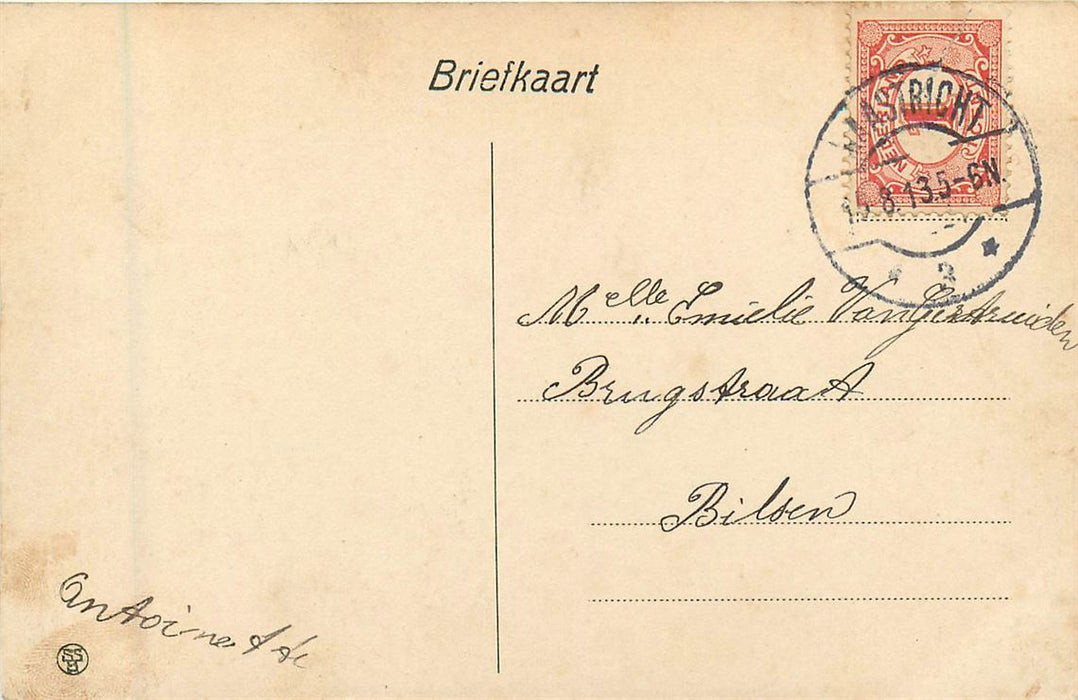 Briefkaart
NEDERLAND
MAASTRICHT
15.8.13 5-6N.
* 3 *
Melle Emielie Vangertruiden
Brugstraat
Bilsen
Antoinette